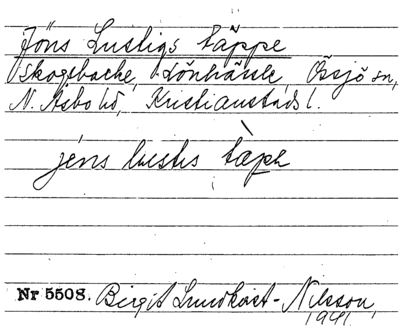 Jöns Lustigs täppe
Skogsbacke, Lönhässle, Össjö sn,
N. Åsbo hd, Kristianstads l.
jöns lustis täpe
Nr 5508. Birgit Lundkvist-Nilsson,
1941.